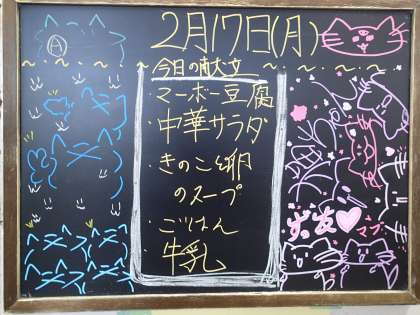 A
2月17日(月)
今日の献立
・マーボー豆腐
・中華サラダ
・きのこと卵
のスープ
・ごはん
・牛乳
ずっ友♡マブ